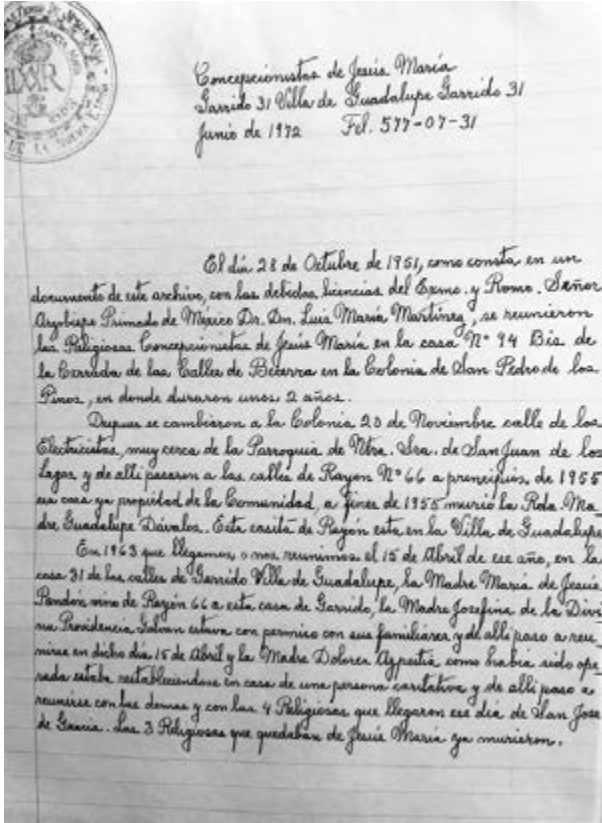 SANTA MARIA
DE LA NUEVA
Concepcionistas de Jesús María
Garrido 31 Villa de Guadalupe Garrido 31
Junio de 1972 Tel. 577-07-31
El día 28 de Octubre de 1951, como consta en un
documento de este archivo, con las debidas licencias del Exmo. y Rvmo. Señor
Arzobispo Primado de México Dr. Dn. Luis María Martínez, se reunieron
las Religiosas Concepcionistas de Jesús María en la casa Nº 94 Bis de
la Cerrada de las Calles de Becerra en la Colonia de San Pedro de los
Pinos, en donde duraron unos 2 años.
Depues se cambiaron a la Colonia 20 de Noviembre calle de los
Electricistas, muy cerca de la Parroquia de Ntra. Sra. de San Juan de los
Lagos, y de alli pasaron a las calles de Rayon Nº 66 a principios de 1955
esa casa ya propiedad de la Comunidad, a fines de 1955 murió la Rda. Ma-
dre Guadalupe Dávalos. Esta casita de Rayón esta en la Villa de Guadalupe
En 1963 que llegamos o nos reunimos el 15 de Abril de ese año, en la
casa 31 de las calles de Garrido Villa de Guadalupe, la Madre Maria de Jesús
vino de Rayón 66 a esta casa de Garrido, la Madre Josefina de la Divi
na Providencia Galvan estava con permiso con sus familiares y de alli paso a reu
nirse en dicho dia 15 de Abril y la Madre Dolores Azpeitia como habia sido ope
rada estaba restableciendose en casa de una persona caritativa y de alli paso a
reunirse con las demas y con las 4 Religiosas que llegaron ese dia de San Jose
de Gracia. Las 3 Religiosas que quedaban de Jesús María ya murieron.